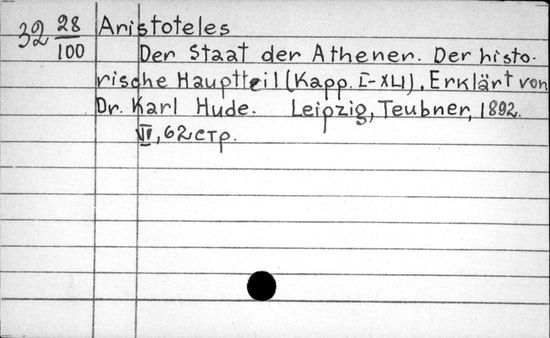 32 28/100 Aristoteles
Der Staat der Athener. Der histo-
rische Hauptteil (Kapp. I-XLI). Erklärt von
Dr. Karl Hude. Leipzig, Teubner, 1892.
IV, 62 стр.